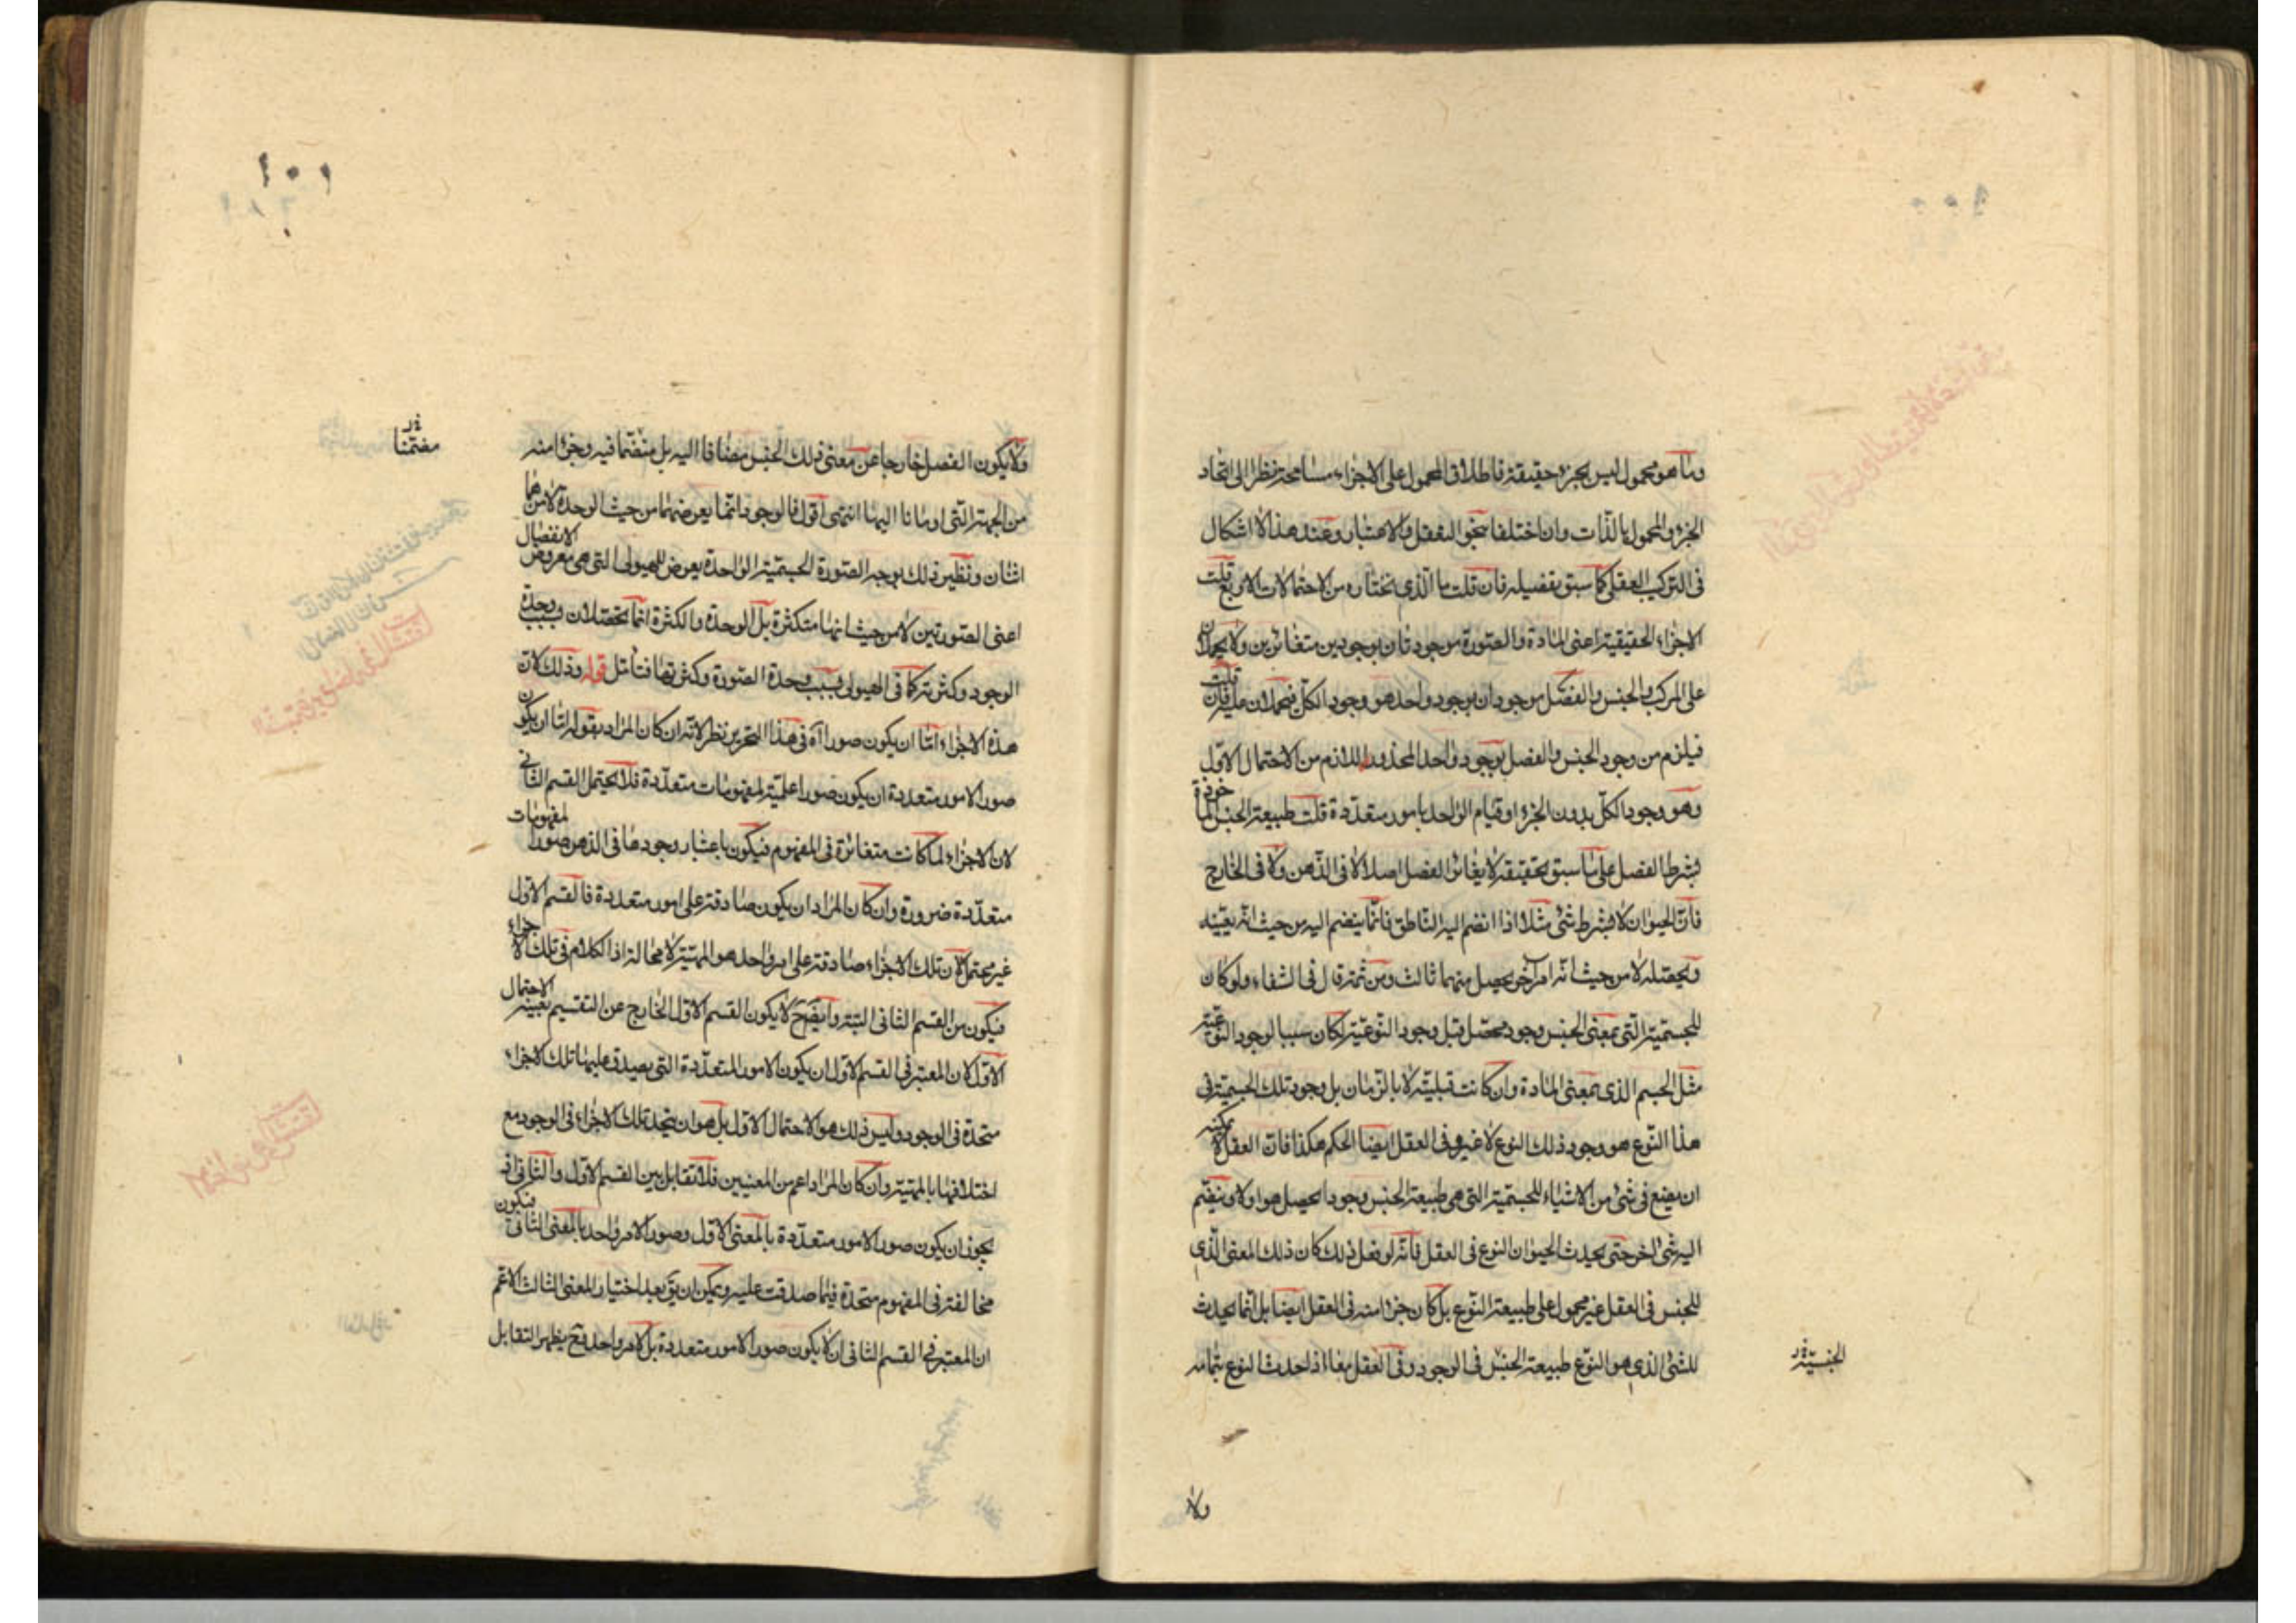 وما هو محمول ليس بجزء حقيقة فاطلاق المحمول على الاجزاء مسامحة نظرا الى اتحاد
الجزء والمحمول بالذات وان اختلفا بنحو التعقل والاعتبار وعند هذا لا اشكال
فى التركيب العقلى كما سبق تفصيله فان قلت ما الذى تختاره من الاحتمالات الاربع قلت
الاجزاء الحقيقية اعنى المادة والصورة موجودتان بوجودين متغائرين ولا يحملان
على المركب والجنس والفصل موجودان بوجود واحد هو وجود الكل فيحملان عليه فان قلت
فيلزم من وجود الجنس والفصل بوجود واحد المحذور اللازم من الاحتمال الاول
وهو وجود الكل بدون الجزء او قيام الواحد بامور متعددة قلت طبيعة الجنس المأخوذة
بشرط الفصل على ما سبق تحقيقه لا يغائر الفصل اصلا لا فى الذهن ولا فى الخارج
فان الحيوان لا بشرط شئ مثلا اذا انضم اليه الناطق فانما ينضم اليه من حيث انه يعينه
ويحصله لا من حيث انه امر آخر يحصل منهما ثالث ومن ثمة قال فى الشفاء ولو كان
للجسمية التى بمعنى الجنس وجود محصل قبل وجود النوعية لكان سببا لوجود النوعية
مثل الجسم الذى بمعنى المادة وان كانت قبليته لا بالزمان بل وجود تلك الجسمية فى
هذا النوع هو وجود ذلك النوع لا غير وفى العقل ايضا الحكم هكذا فان العقل لا يمكنه
ان يضع فى شئ من الاشياء للجسمية التى هى طبيعة الجنس وجودا يحصل هو اولا وينضم
اليه شئ آخر حتى يحدث الحيوان النوع فى العقل فانه لو فعل ذلك كان ذلك المعنى الذى
للجنس فى العقل غير محمول على طبيعة النوع بل كان جزءا منه فى العقل ايضا بل انما يحدث
للشئ الذى هو النوع طبيعة الجنس فى الوجود وفى العقل معا اذا حدث النوع بتمامه
الجنسية
ولا
١٠١
ولا يكون الفصل خارجا عن معنى ذلك الجنس مضافا اليه بل متضمنا فيه وجزءا منه
مضمنا
من الجهة التى اومأنا اليها انتهى اقول فالوجود انما يعرضهما من حيث الوحدة لا من هما
اثنان ونظير ذلك بوجه الصورة الجسمية الواحدة يعرض للهيولى التى هى معروض الانفصال
اعنى الصورتين لا من حيث انها متكثرة بل الوحدة والكثرة انما يحصلان بسبب وحدة
الوجود وكثرته كما فى الهيولى بسبب وحدة الصورة وكثرتها فتأمل قوله وذلك لان
هذه الاجزاء اما ان يكون صورا آه فى هذا التحرير نظر لانه ان كان المراد بقوله اما ان يكون
صورا لامور متعددة ان يكون صورا علمية لمفهومات متعددة فلا يحتمل القسم الثانى
لان الاجزاء لما كانت متغائرة فى المفهوم فيكون باعتبار وجودها فى الذهن صورا لمفهومات
متعددة ضرورة وان كان المراد ان يكون صادقة على امور متعددة فالقسم الاول
غير محتمل لان تلك الاجزاء صادقة على امر واحد هو المهية لا محالة اذ الكلام فى تلك الاجزاء
فيكون من القسم الثانى البتة وايضا ح لا يكون القسم الاول الخارج عن التقسيم بعينه الاحتمال
الاول لان المعتبر فى القسم الاول ان يكون الامور المتعددة التى يصدق عليها تلك الاجزاء
متحدة فى الوجود وليس ذلك هو الاحتمال الاول بل هو ان يتحد تلك الاجزاء فى الوجود مع
اختلافها بالمهية وان كان المراد اعم من المعنيين فلا تقابل بين القسم الاول والثانى اذ
يجوز ان يكون صورا لامور متعددة بالمعنى الاول وصورا لامر واحد بالمعنى الثانى فيكون
مخالفة فى المفهوم متحدة فيما صدقت عليه ويمكن ان يق بعد اختيار المعنى الثالث الاعم
ان المعتبر فى القسم الثانى ان لا يكون صورا لامور متعددة بل لامر واحد فح يظهر التقابل